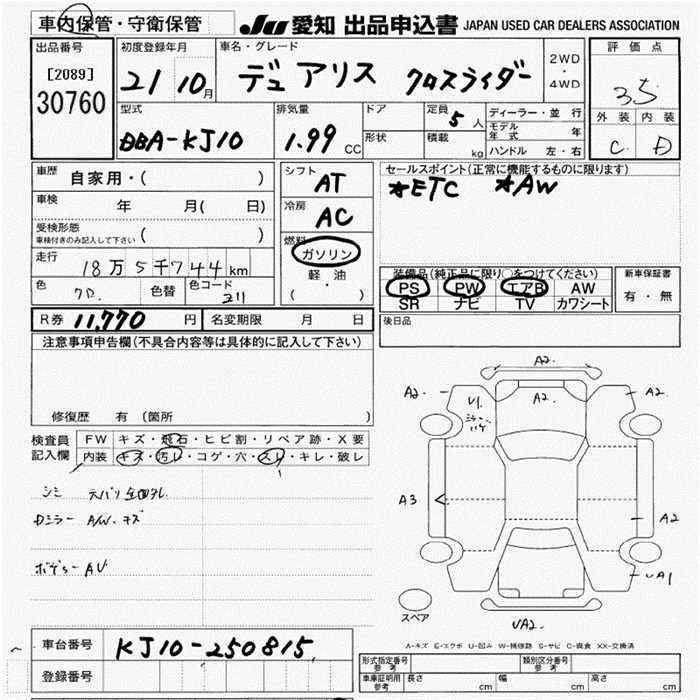 車内保管・守衛保管
JU 愛知 出品申込書 JAPAN USED CAR DEALERS ASSOCIATION
出品番号
[2089]
30760
初度登録年月
21 10月
車名・グレード
デュアリス クロスライダー
2WD
・
4WD
評価点
3.5
外装 内装
C D
型式
DBA-KJ10
排気量
1.99 CC
ドア
形状
定員
5人
積載
kg
ディーラー・並行
モデル年式 年
ハンドル 左・右
車歴
自家用・( )
車検
年 月( 日)
受検形態
車検付きのみ記入して下さい ( )
走行
18万5千744km
色
クロ
色替
色コード
211
シフト
AT
冷房
AC
燃料
ガソリン
軽油
( ・ )
セールスポイント(正常に機能するものに限ります)
*ETC *AW
装備品(純正品に限り○をつけてください)
PS PW エアB AW
SR ナビ TV カワシート
新車保証書
有・無
R券 11,770円
名変期限 月 日
後日品
注意事項申告欄(不具合内容等は具体的に記入して下さい)
修復歴 有 〔箇所 〕
検査員記入欄
FW キズ・飛石・ヒビ割・リペア跡・X要
内装 キズ・汚レ・コゲ・穴・スレ・キレ・破レ
シミ
Dミラー A/W.キズ
ボデー AU
A2.
A2.
A2.
A2.
U1.
A3
A2
UA1
UA2.
スペア
A-キズ E-エクボ U-凹み W-補修跡 S-サビ C-腐食 XX-交換済
車台番号
KJ10-250815
登録番号
形式指定番号
参考
類別区分番号
参考
車庫証明用
参考
長さ cm
幅 cm
高さ cm